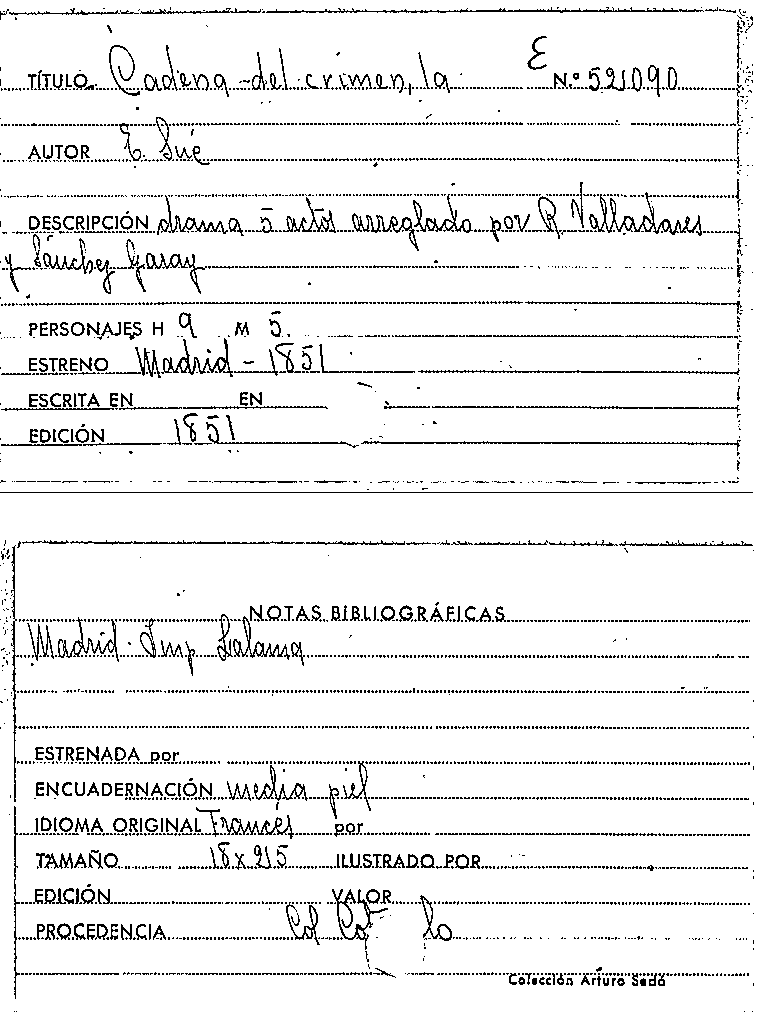 TÍTULO Cadena del crimen, la E N.º 521090
AUTOR E. Sué
DESCRIPCIÓN drama 5 actos arreglado por R. Valladares
y Sánchez Garay
PERSONAJES H 9 M 5.
ESTRENO Madrid - 1851
ESCRITA EN EN
EDICIÓN 1851
NOTAS BIBLIOGRÁFICAS
Madrid. Imp Lalama
ESTRENADA por
ENCUADERNACIÓN media piel
IDIOMA ORIGINAL Francés por
TAMAÑO 18 x ILUSTRADO POR
EDICIÓN VALOR
PROCEDENCIA Col
Colección Arturo Sedó